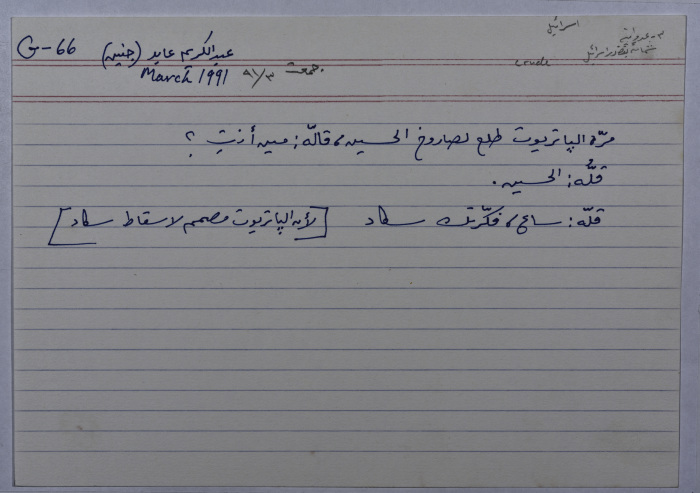 G-66
عبدالكريم عابد (جنين)
March 1991
جمعت ٩١/٣
اسرائيل
crude
مرّة الپاتريوت طلع لصاروخ الحسين، قالّه: مين أنتِ؟
قلُّه: الحسين.
قلّه: سامح، فكّرتك سكاد [لأن الپاتريوت مصمم لاسقاط سكاد]